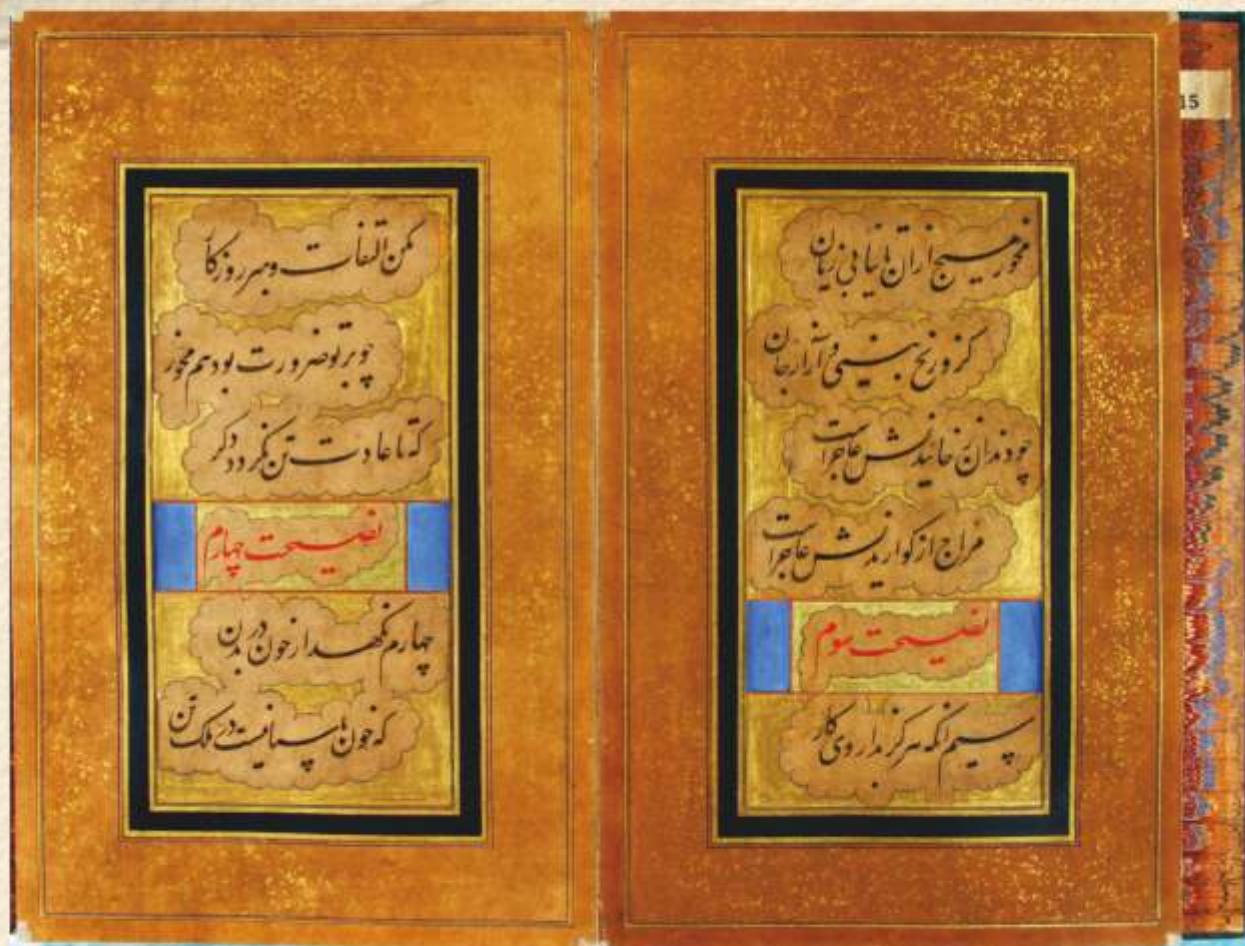 مخور هیچ از آن تا نیابی زیان
کزو رنج بینی و آزار جان
چو دندان ز خائیدنش عاجز است
مزاج از کواریدنش عاجز است
نصیحت سوم
سیم آنکه هرکز بداروی کار
مکن التفات و بسر روزکار
چو بر تو ضرورت بود هم مخور
که تا عادت تن نکردد دکر
نصیحت چهارم
چهارم نکهدار خون در بدن
که خون پاسبانیست در ملک تن
15